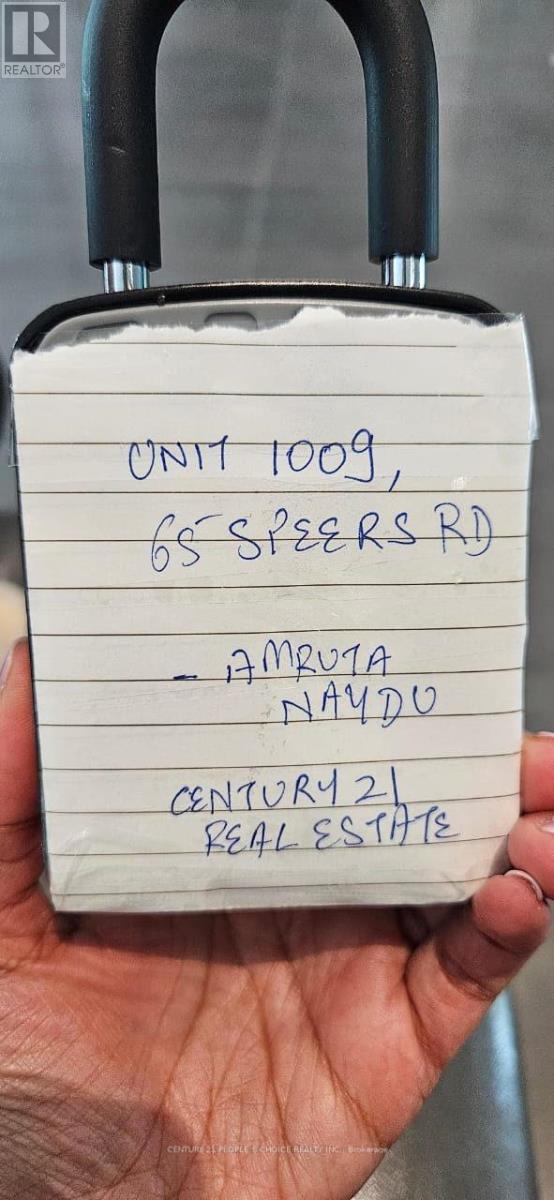 REALTOR®
UNIT 1009,
65 SPEERS RD
- AMRUTA
NAYDU
CENTURY 21
REAL ESTATE
CENTURY 21 PEOPLE'S CHOICE REALTY INC., Brokerage